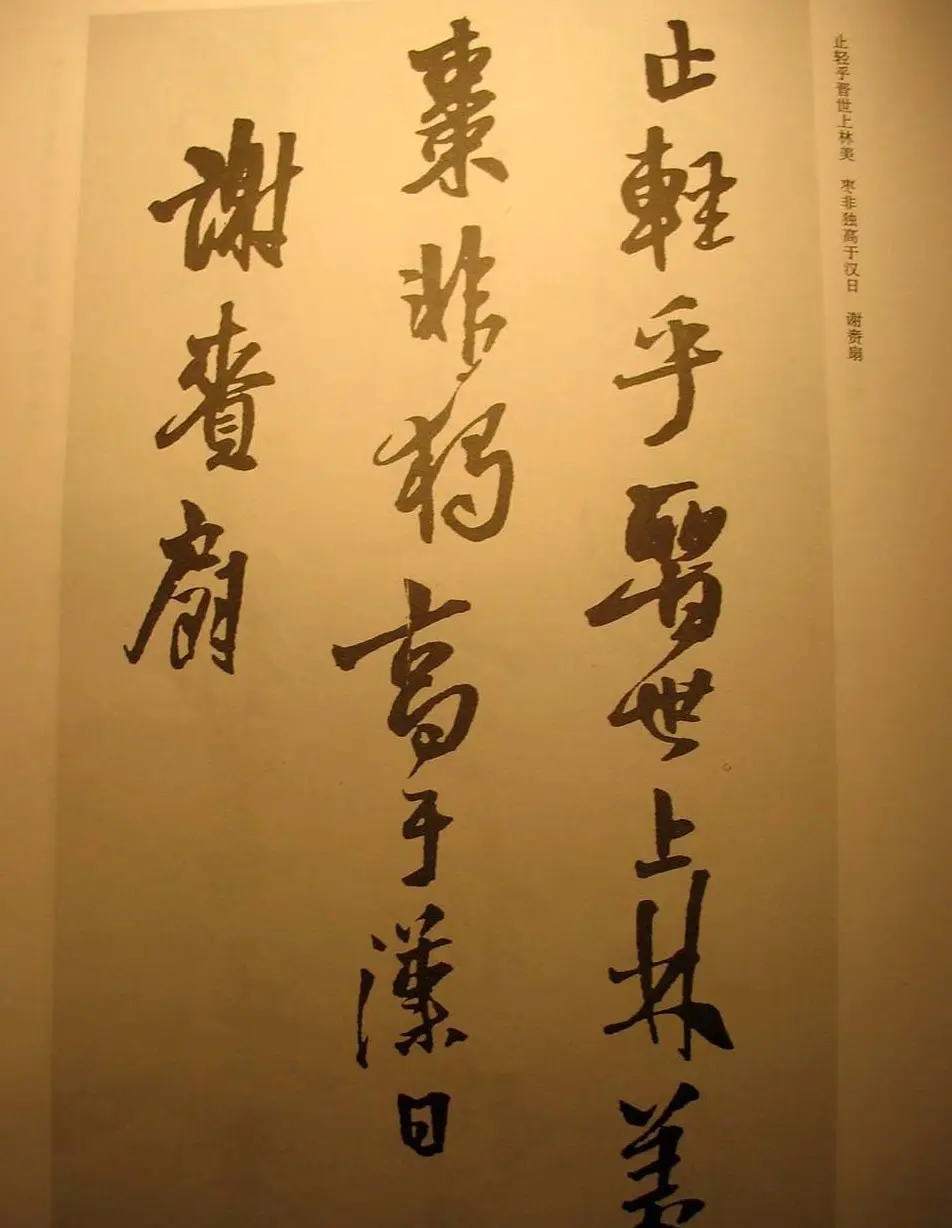 止轻乎晋世上林美　枣非独高于汉日　谢赉扇
止軽乎晋世上林美
棗非獨高于漢日
謝賚扇